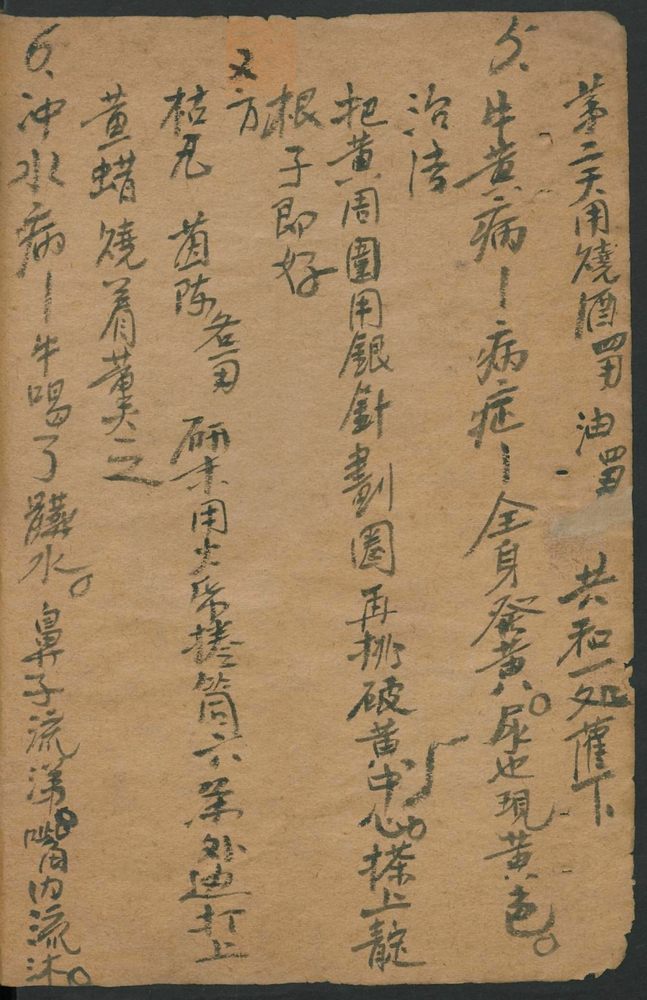 第二天用燒酒四两 油四两 共和一处灌下
5、牛黄病—病症—全身發黄。尿也現黄色。
治法
把黄周圍用銀針劃圈再挑破黄中心。搽上靛
根子即好
又方
枯凡 茵陈各一两 研末用火纸捲筒六个外边打上
黄蜡燒着薰之
6、冲水病—牛喝了髒水。鼻子流涕。嘴内流沫。